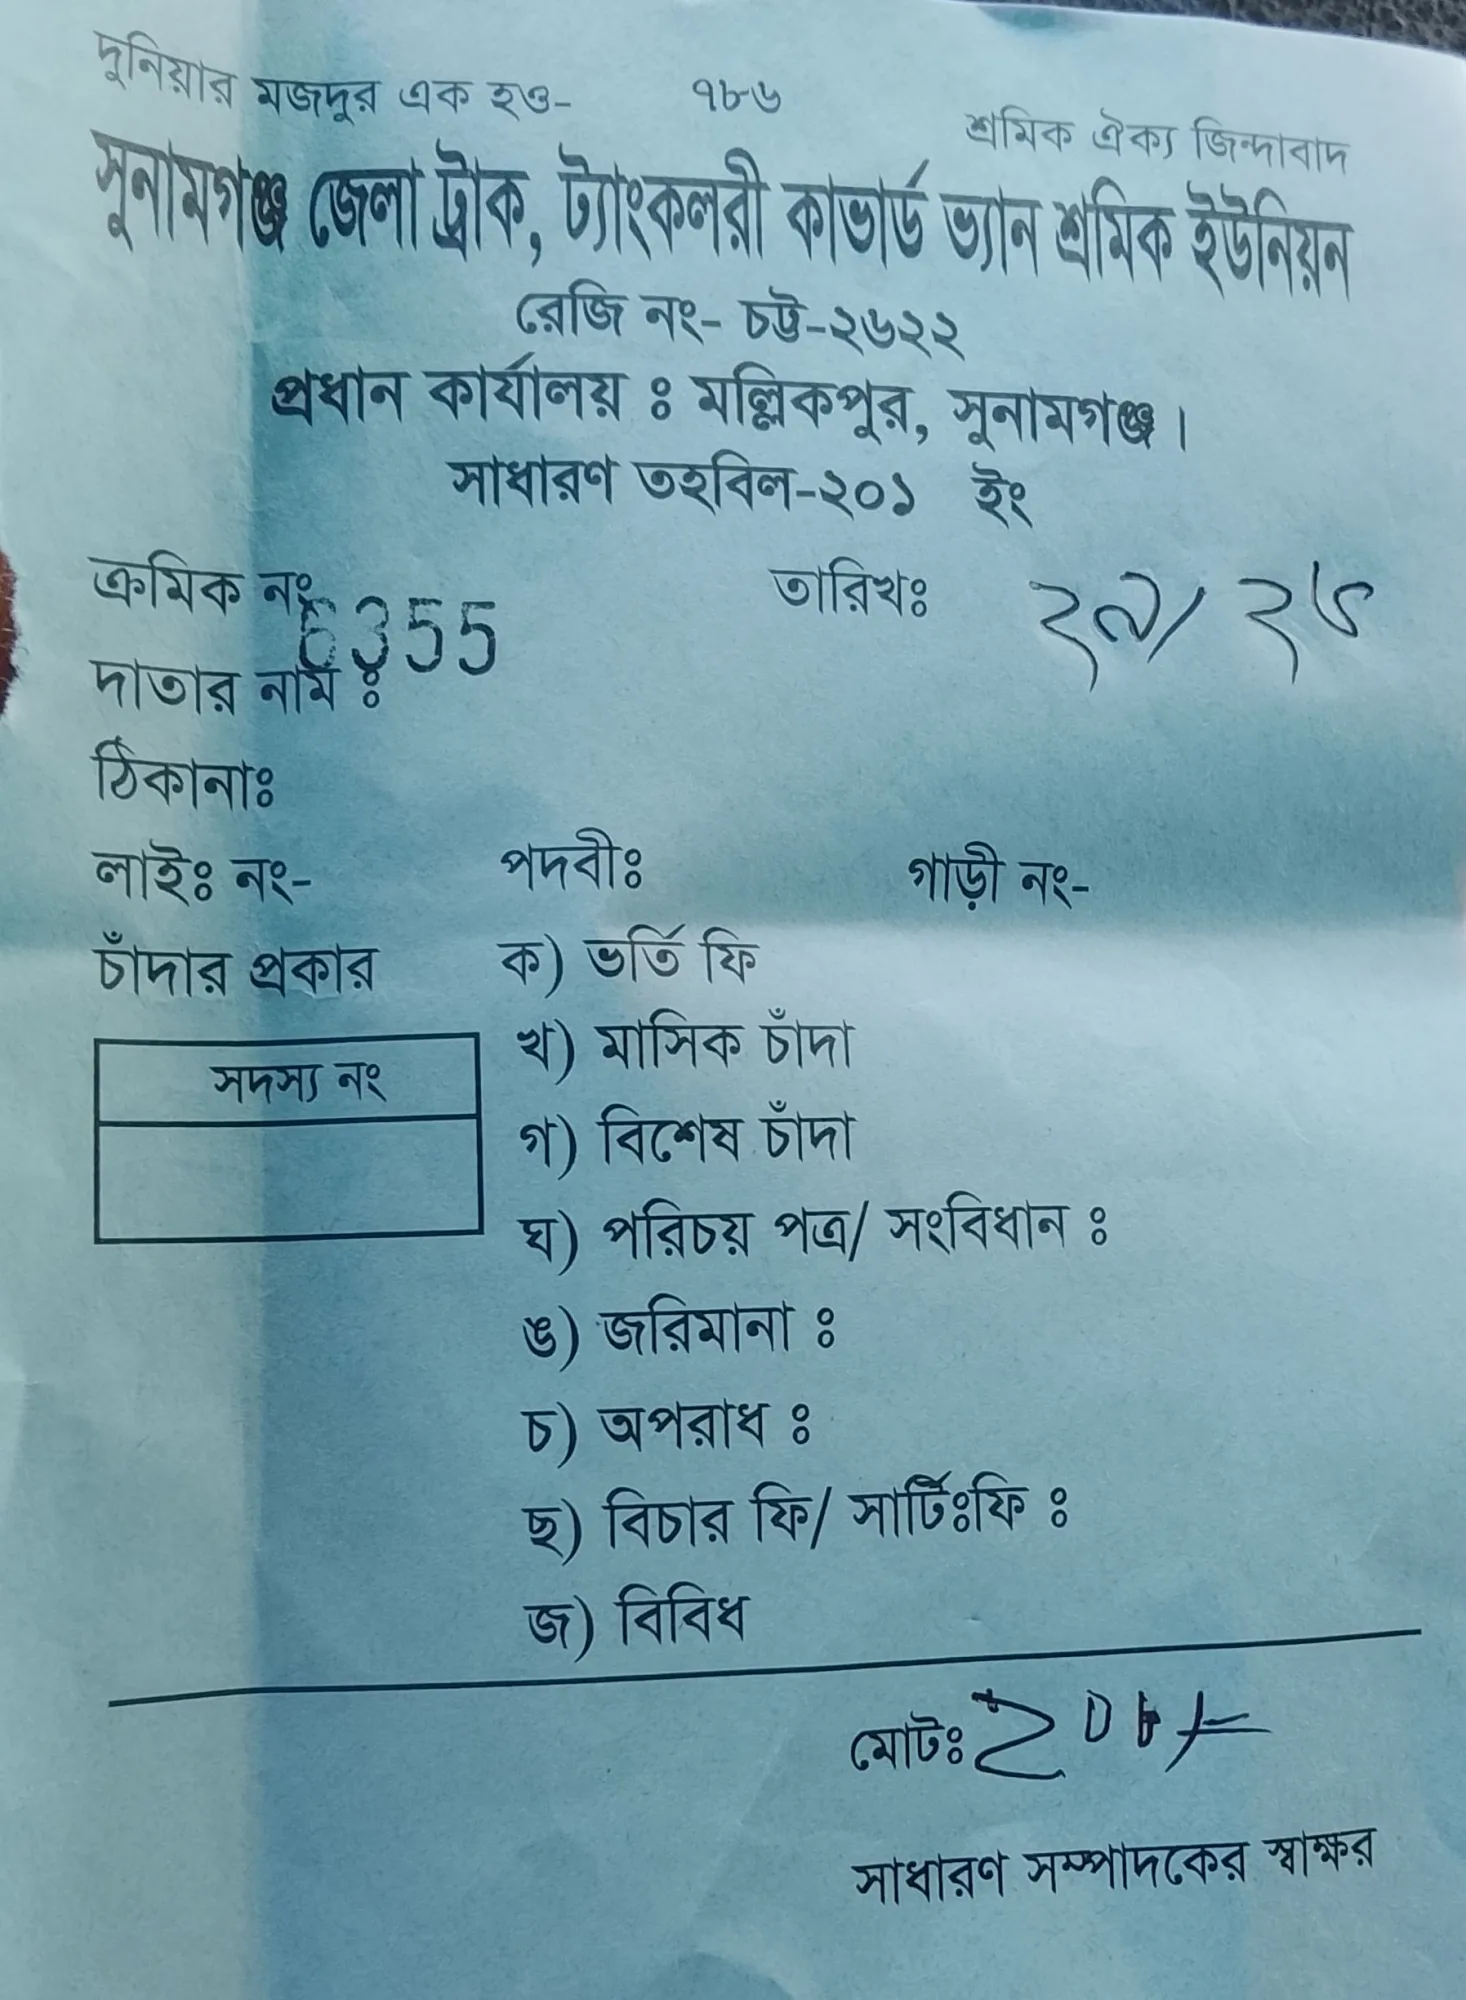 দুনিয়ার মজদুর এক হও- ৭৮৬ শ্রমিক ঐক্য জিন্দাবাদ
সুনামগঞ্জ জেলা ট্রাক, ট্যাংকলরী কাভার্ড ভ্যান শ্রমিক ইউনিয়ন
রেজি নং- চট্ট-২৬২২
প্রধান কার্যালয় ঃ মল্লিকপুর, সুনামগঞ্জ।
সাধারণ তহবিল-২০১ ইং
ক্রমিক নং 6355 তারিখঃ
দাতার নাম ঃ
ঠিকানাঃ
লাইঃ নং- পদবীঃ গাড়ী নং-
চাঁদার প্রকার ক) ভর্তি ফি
খ) মাসিক চাঁদা
সদস্য নং
গ) বিশেষ চাঁদা
ঘ) পরিচয় পত্র/ সংবিধান ঃ
ঙ) জরিমানা ঃ
চ) অপরাধ ঃ
ছ) বিচার ফি/ সার্টিঃফি ঃ
জ) বিবিধ
মোটঃ
সাধারণ সম্পাদকের স্বাক্ষর